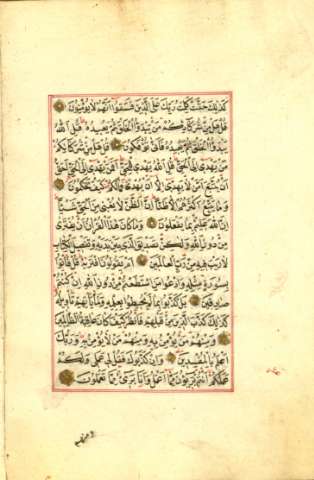 كَذٰلِكَ حَقَّتْ كَلِمَتُ رَبِّكَ عَلَى الَّذِينَ فَسَقُوا اَنَّهُمْ لَا يُؤْمِنُونَ
قُلْ هَلْ مِنْ شُرَكَائِكُمْ مَنْ يَبْدَؤُا الْخَلْقَ ثُمَّ يُعِيدُهُ قُلِ اللّٰهُ
يَبْدَؤُا الْخَلْقَ ثُمَّ يُعِيدُهُ فَاَنّٰى تُؤْفَكُونَ قُلْ هَلْ مِنْ شُرَكَائِكُمْ
مَنْ يَهْدِي اِلَى الْحَقِّ قُلِ اللّٰهُ يَهْدِي لِلْحَقِّ اَفَمَنْ يَهْدِي اِلَى الْحَقِّ اَحَقُّ
اَنْ يُتَّبَعَ اَمَّنْ لَا يَهِدِّي اِلَّا اَنْ يُهْدٰى فَمَا لَكُمْ كَيْفَ تَحْكُمُونَ
وَمَا يَتَّبِعُ اَكْثَرُهُمْ اِلَّا ظَنًّا اِنَّ الظَّنَّ لَا يُغْنِي مِنَ الْحَقِّ شَيْئًا
اِنَّ اللّٰهَ عَلِيمٌ بِمَا يَفْعَلُونَ وَمَا كَانَ هٰذَا الْقُرْاٰنُ اَنْ يُفْتَرٰى
مِنْ دُونِ اللّٰهِ وَلٰكِنْ تَصْدِيقَ الَّذِي بَيْنَ يَدَيْهِ وَتَفْصِيلَ الْكِتَابِ
لَا رَيْبَ فِيهِ مِنْ رَبِّ الْعَالَمِينَ اَمْ يَقُولُونَ افْتَرٰيهُ قُلْ فَاْتُوا
بِسُورَةٍ مِثْلِهِ وَادْعُوا مَنِ اسْتَطَعْتُمْ مِنْ دُونِ اللّٰهِ اِنْ كُنْتُمْ
صَادِقِينَ بَلْ كَذَّبُوا بِمَا لَمْ يُحِيطُوا بِعِلْمِهِ وَلَمَّا يَاْتِهِمْ تَاْوِيلُهُ
كَذٰلِكَ كَذَّبَ الَّذِينَ مِنْ قَبْلِهِمْ فَانْظُرْ كَيْفَ كَانَ عَاقِبَةُ الظَّالِمِينَ
وَمِنْهُمْ مَنْ يُؤْمِنُ بِهِ وَمِنْهُمْ مَنْ لَا يُؤْمِنُ بِهِ وَرَبُّكَ
اَعْلَمُ بِالْمُفْسِدِينَ وَاِنْ كَذَّبُوكَ فَقُلْ لِي عَمَلِي وَلَكُمْ
عَمَلُكُمْ اَنْتُمْ بَرِيئُونَ مِمَّا اَعْمَلُ وَاَنَا بَرِيءٌ مِمَّا تَعْمَلُونَ
ومنهم